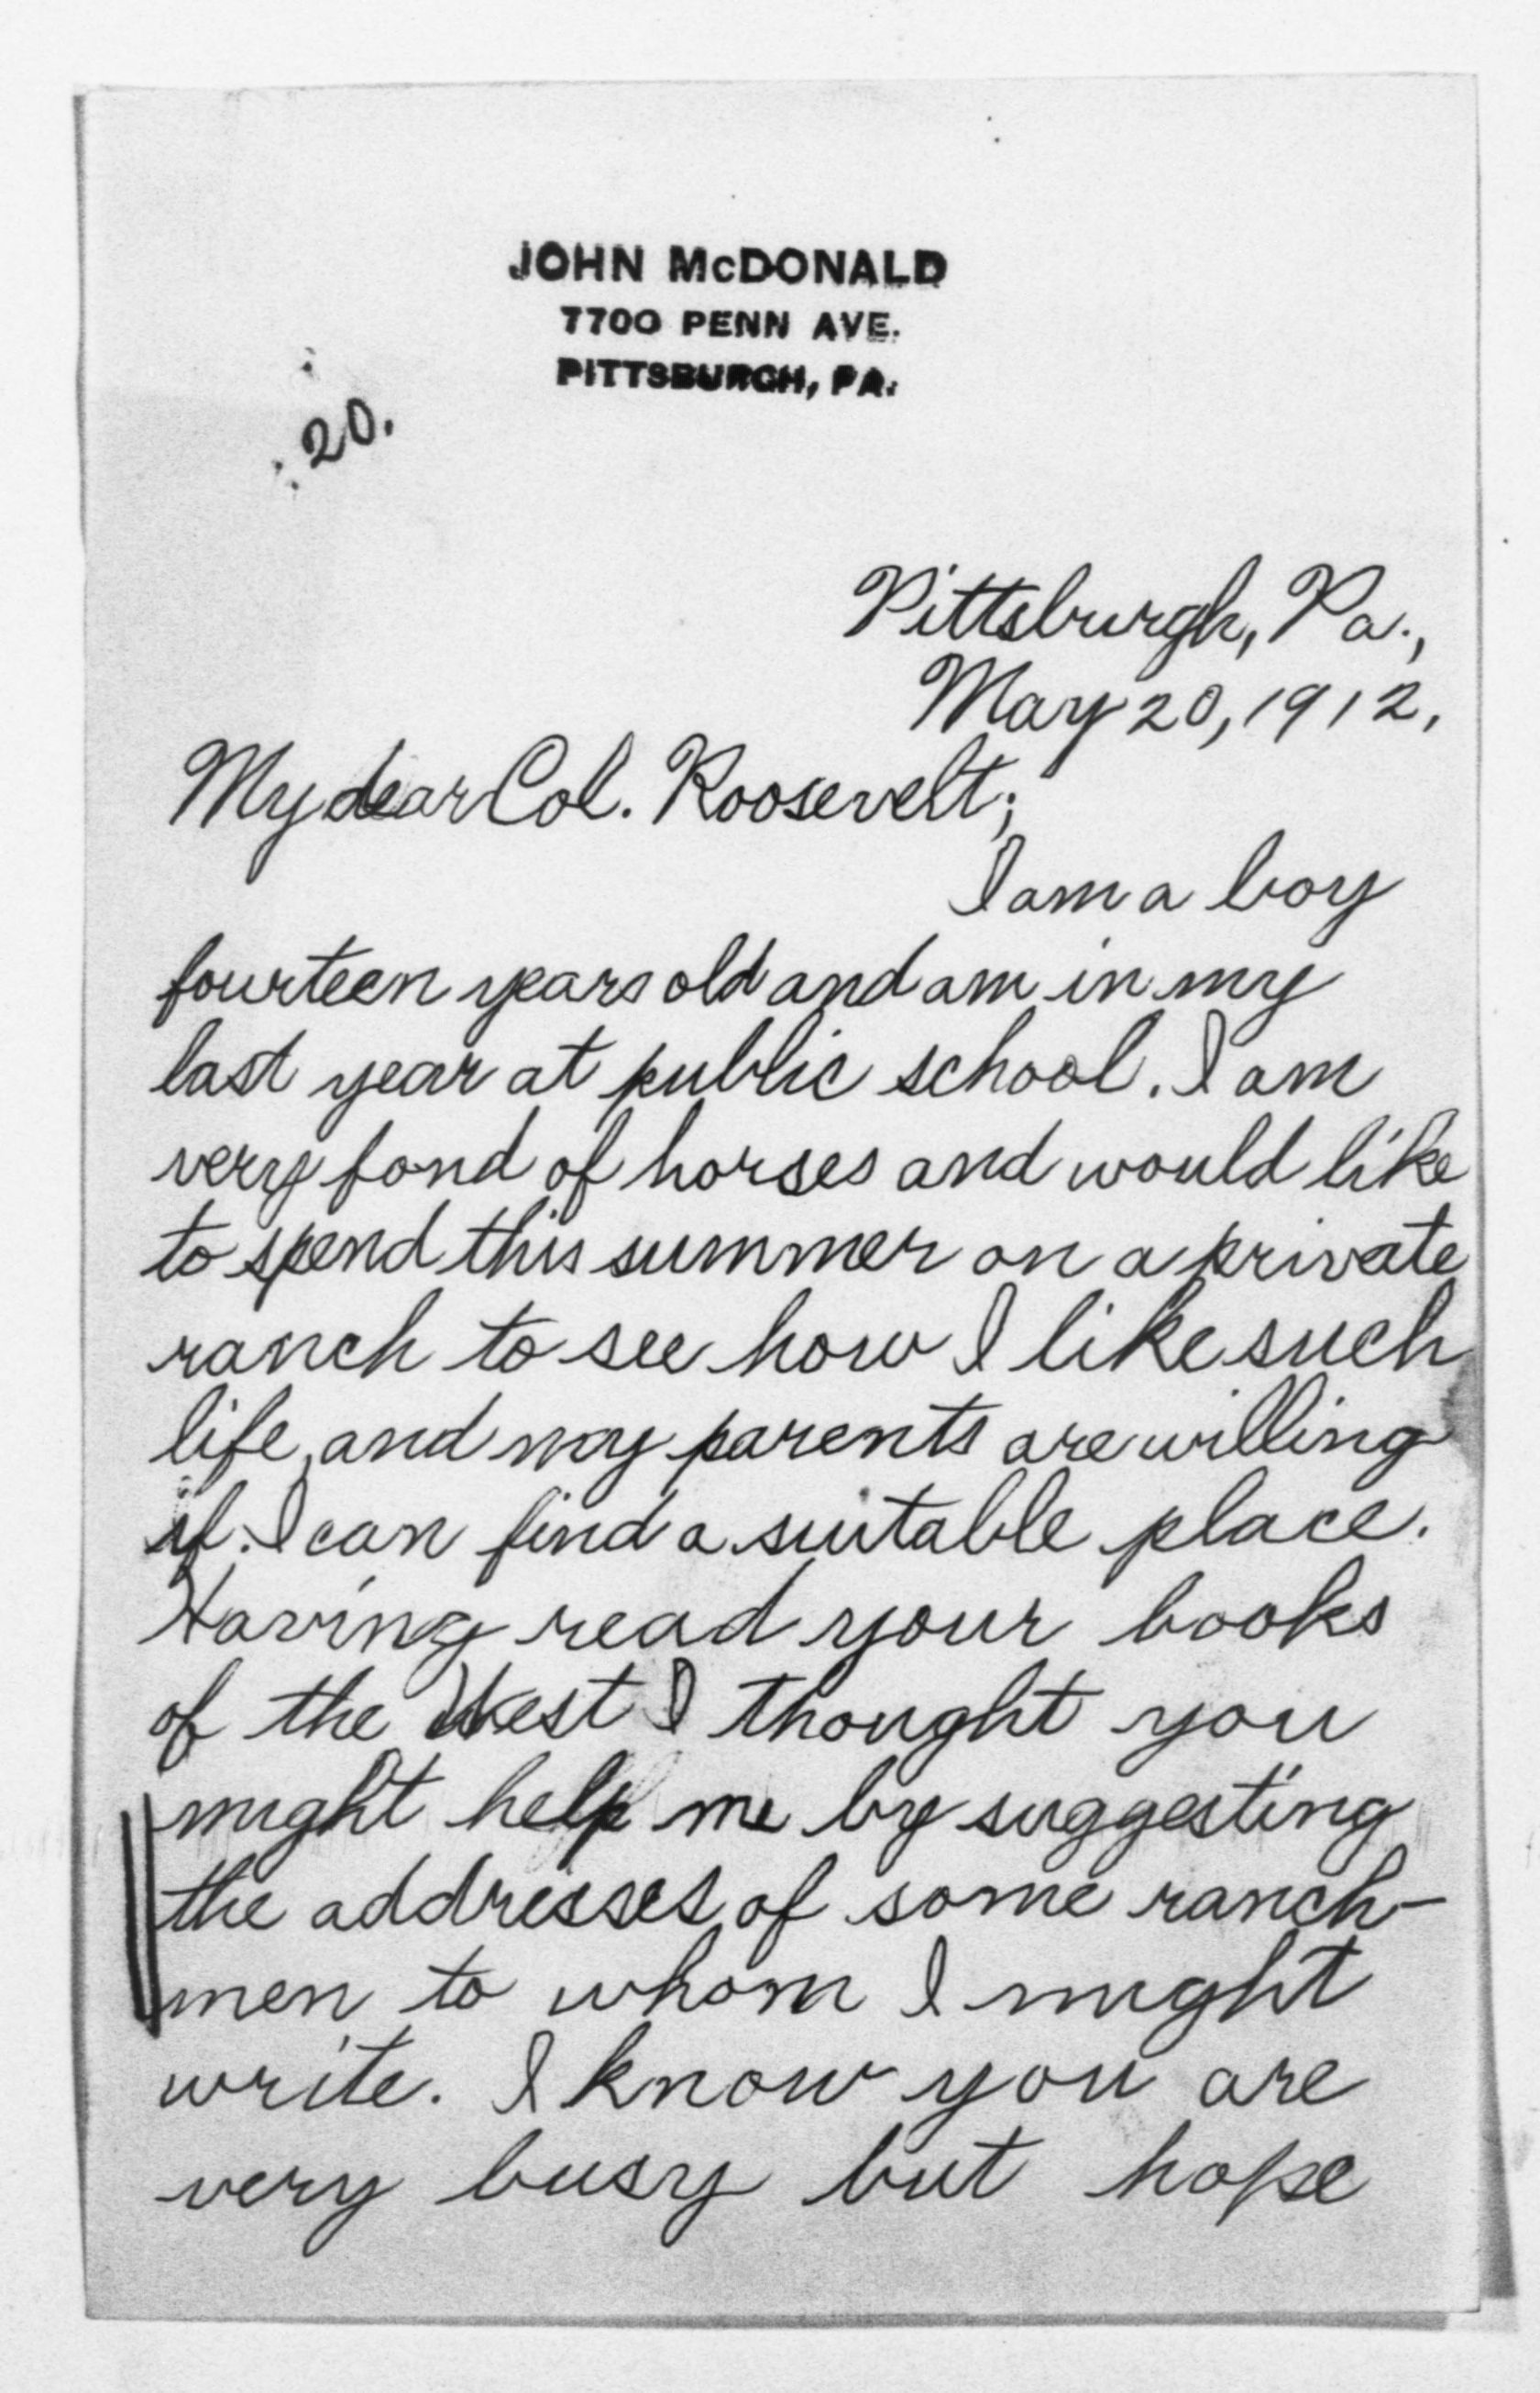 JOHN McDONALD
7700 PENN AVE.
PITTSBURGH, PA.
20.
Pittsburgh, Pa.,
May 20, 1912,
My dear Col. Roosevelt;
I am a boy
fourteen years old and am in my
last year at public school. I am
very fond of horses and would like
to spend this summer on a private
ranch to see how I like such
life, and my parents are willing
if I can find a suitable place.
Having read your books
of the West I thought you
might help me by suggesting
the addresses of some ranch-
men to whom I might
write. I know you are
very busy but hope